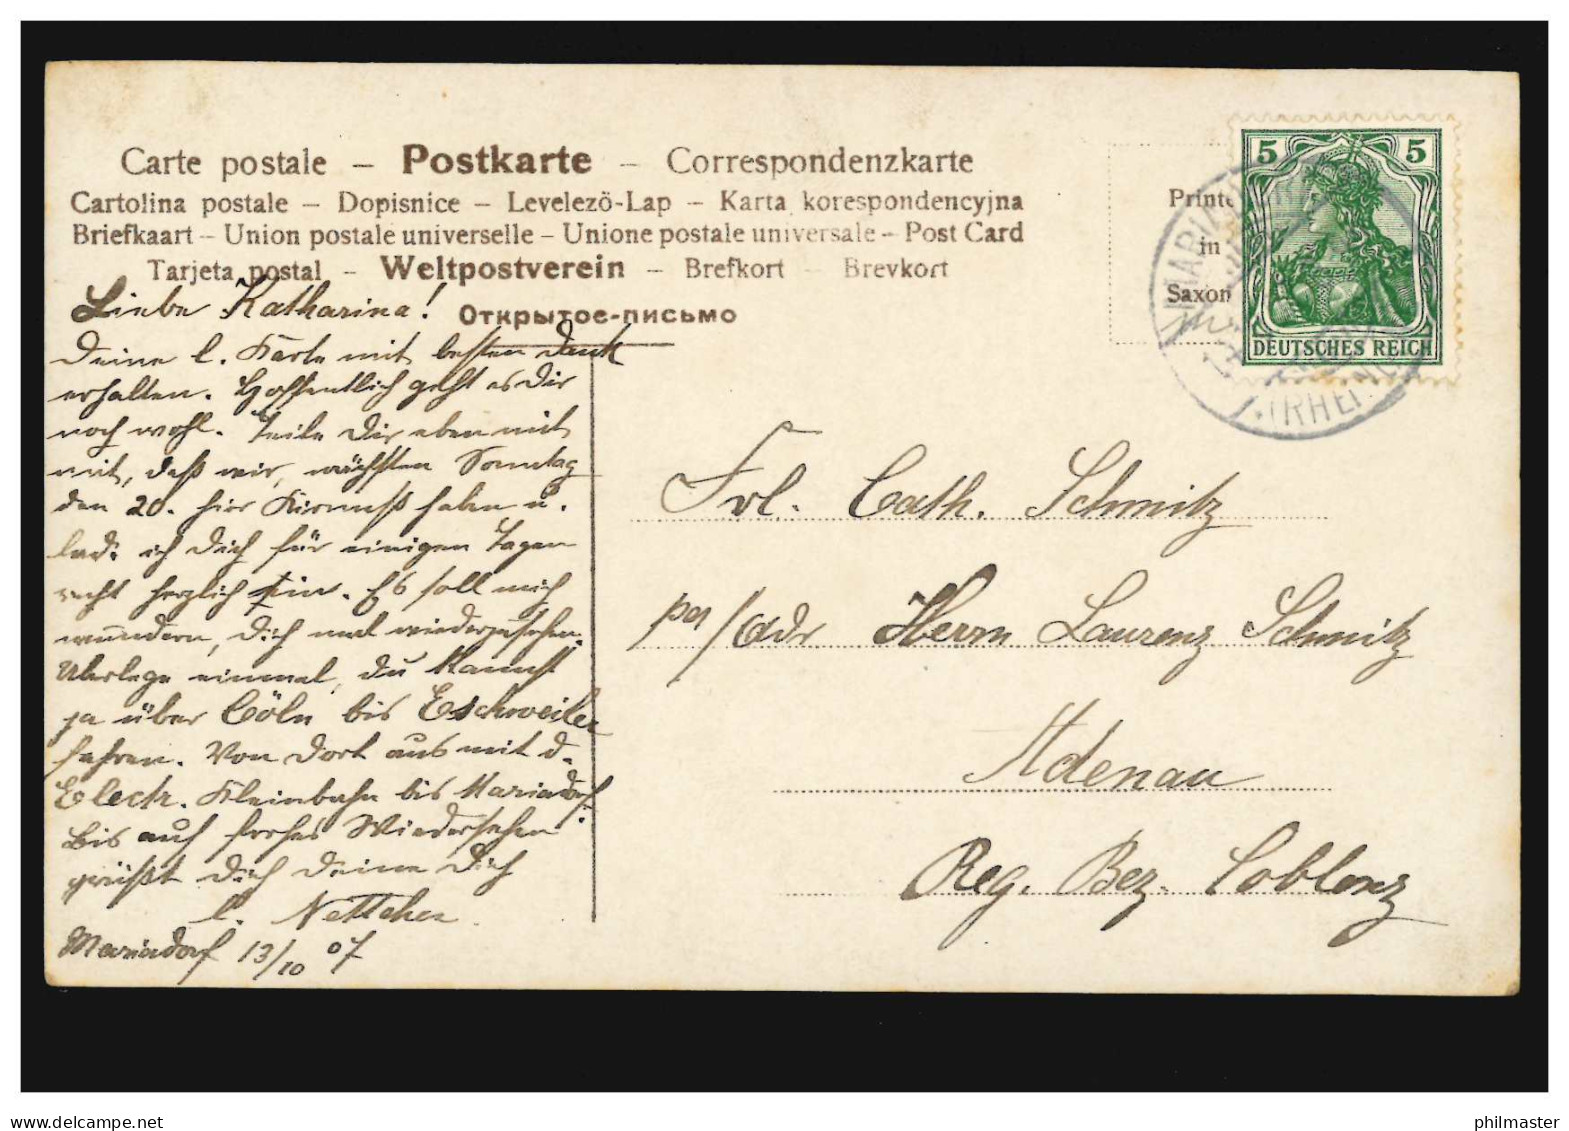 Carte postale – Postkarte – Correspondenzkarte
Cartolina postale – Dopisnice – Levelezö-Lap – Karta korespondencyjna
Briefkaart – Union postale universelle – Unione postale universale – Post Card
Tarjeta postal – Weltpostverein – Brefkort – Brevkort
Открытое-письмо
Printe
in
Saxon
5 5
DEUTSCHES REICH
(RHEINL
Liebe Katharina!
Deine l. Karte mit besten Dank
erhalten. Hoffentlich geht es Dir
noch wohl. Teile Dir eben mit
mit, daß wir, nächsten Sonntag
den 20. hier Kirmeß haben u.
lade ich Dich für einigen Tagen
recht herzlich ein. Es soll mich
wundern, Dich mal wiederzusehen.
Überlege einmal, du kannst
ja über Cöln bis Eschweiler
fahren. Von dort aus mit d.
Electr. Kleinbahn bis Mariadorf.
Bis auf frohes Wiedersehen
grüßt Dich Deine Dich
l. Nettchen
Mariadorf 13/10 07
Frl. Cath. Schmitz
per/Adr Herrn Laurenz Schmitz
Adenau
Reg. Bez. Coblenz
www.delcampe.net
philmaster